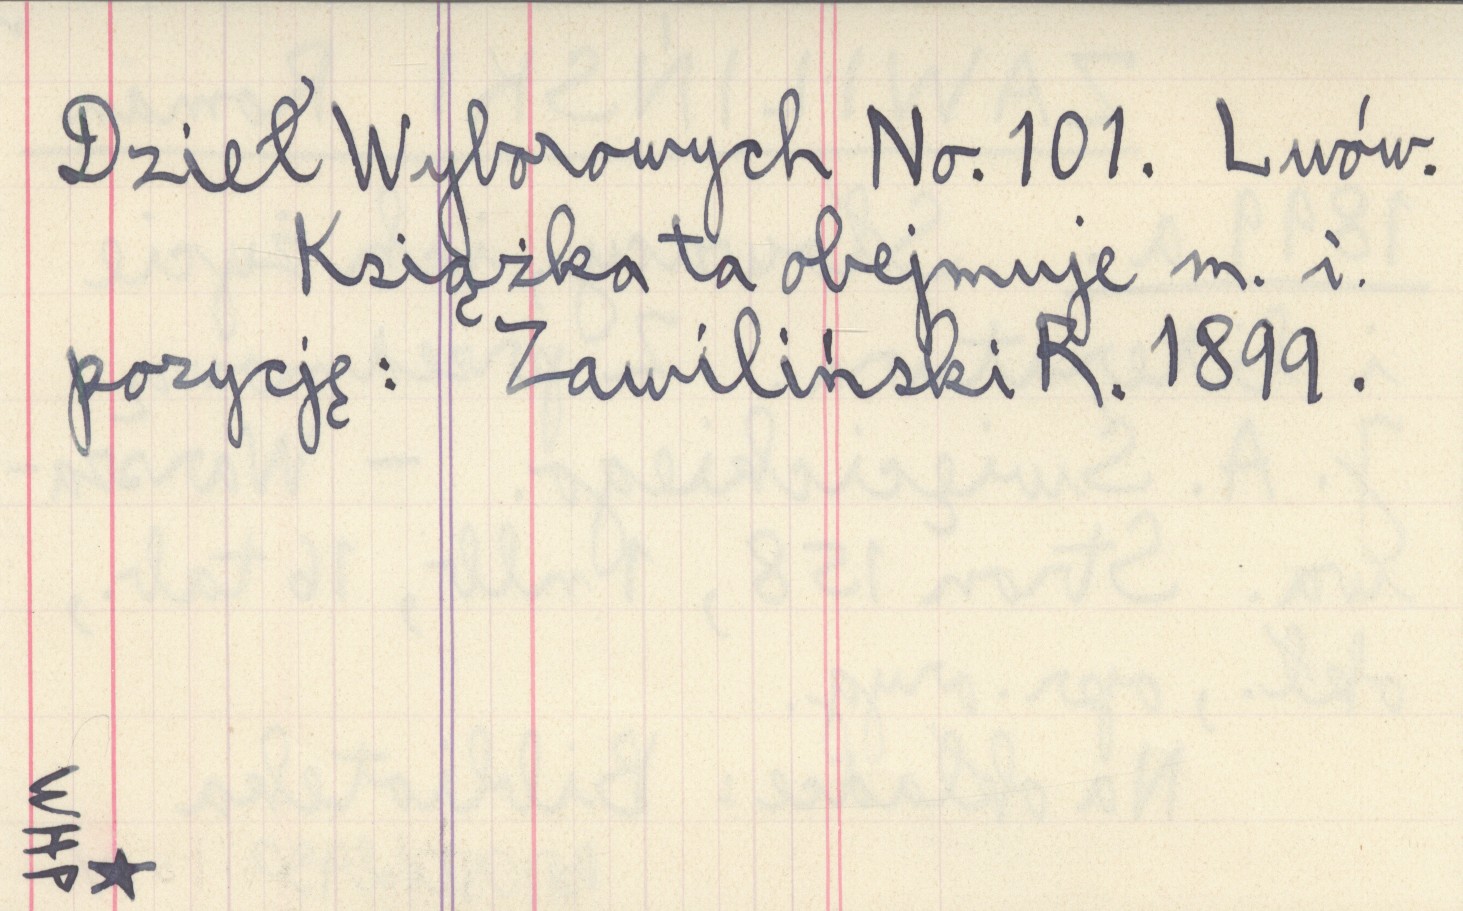 Dzieł Wyborowych No. 101. Lwów.
Książka ta obejmuje m. i.
pozycję: Zawiliński R. 1899.
WHP